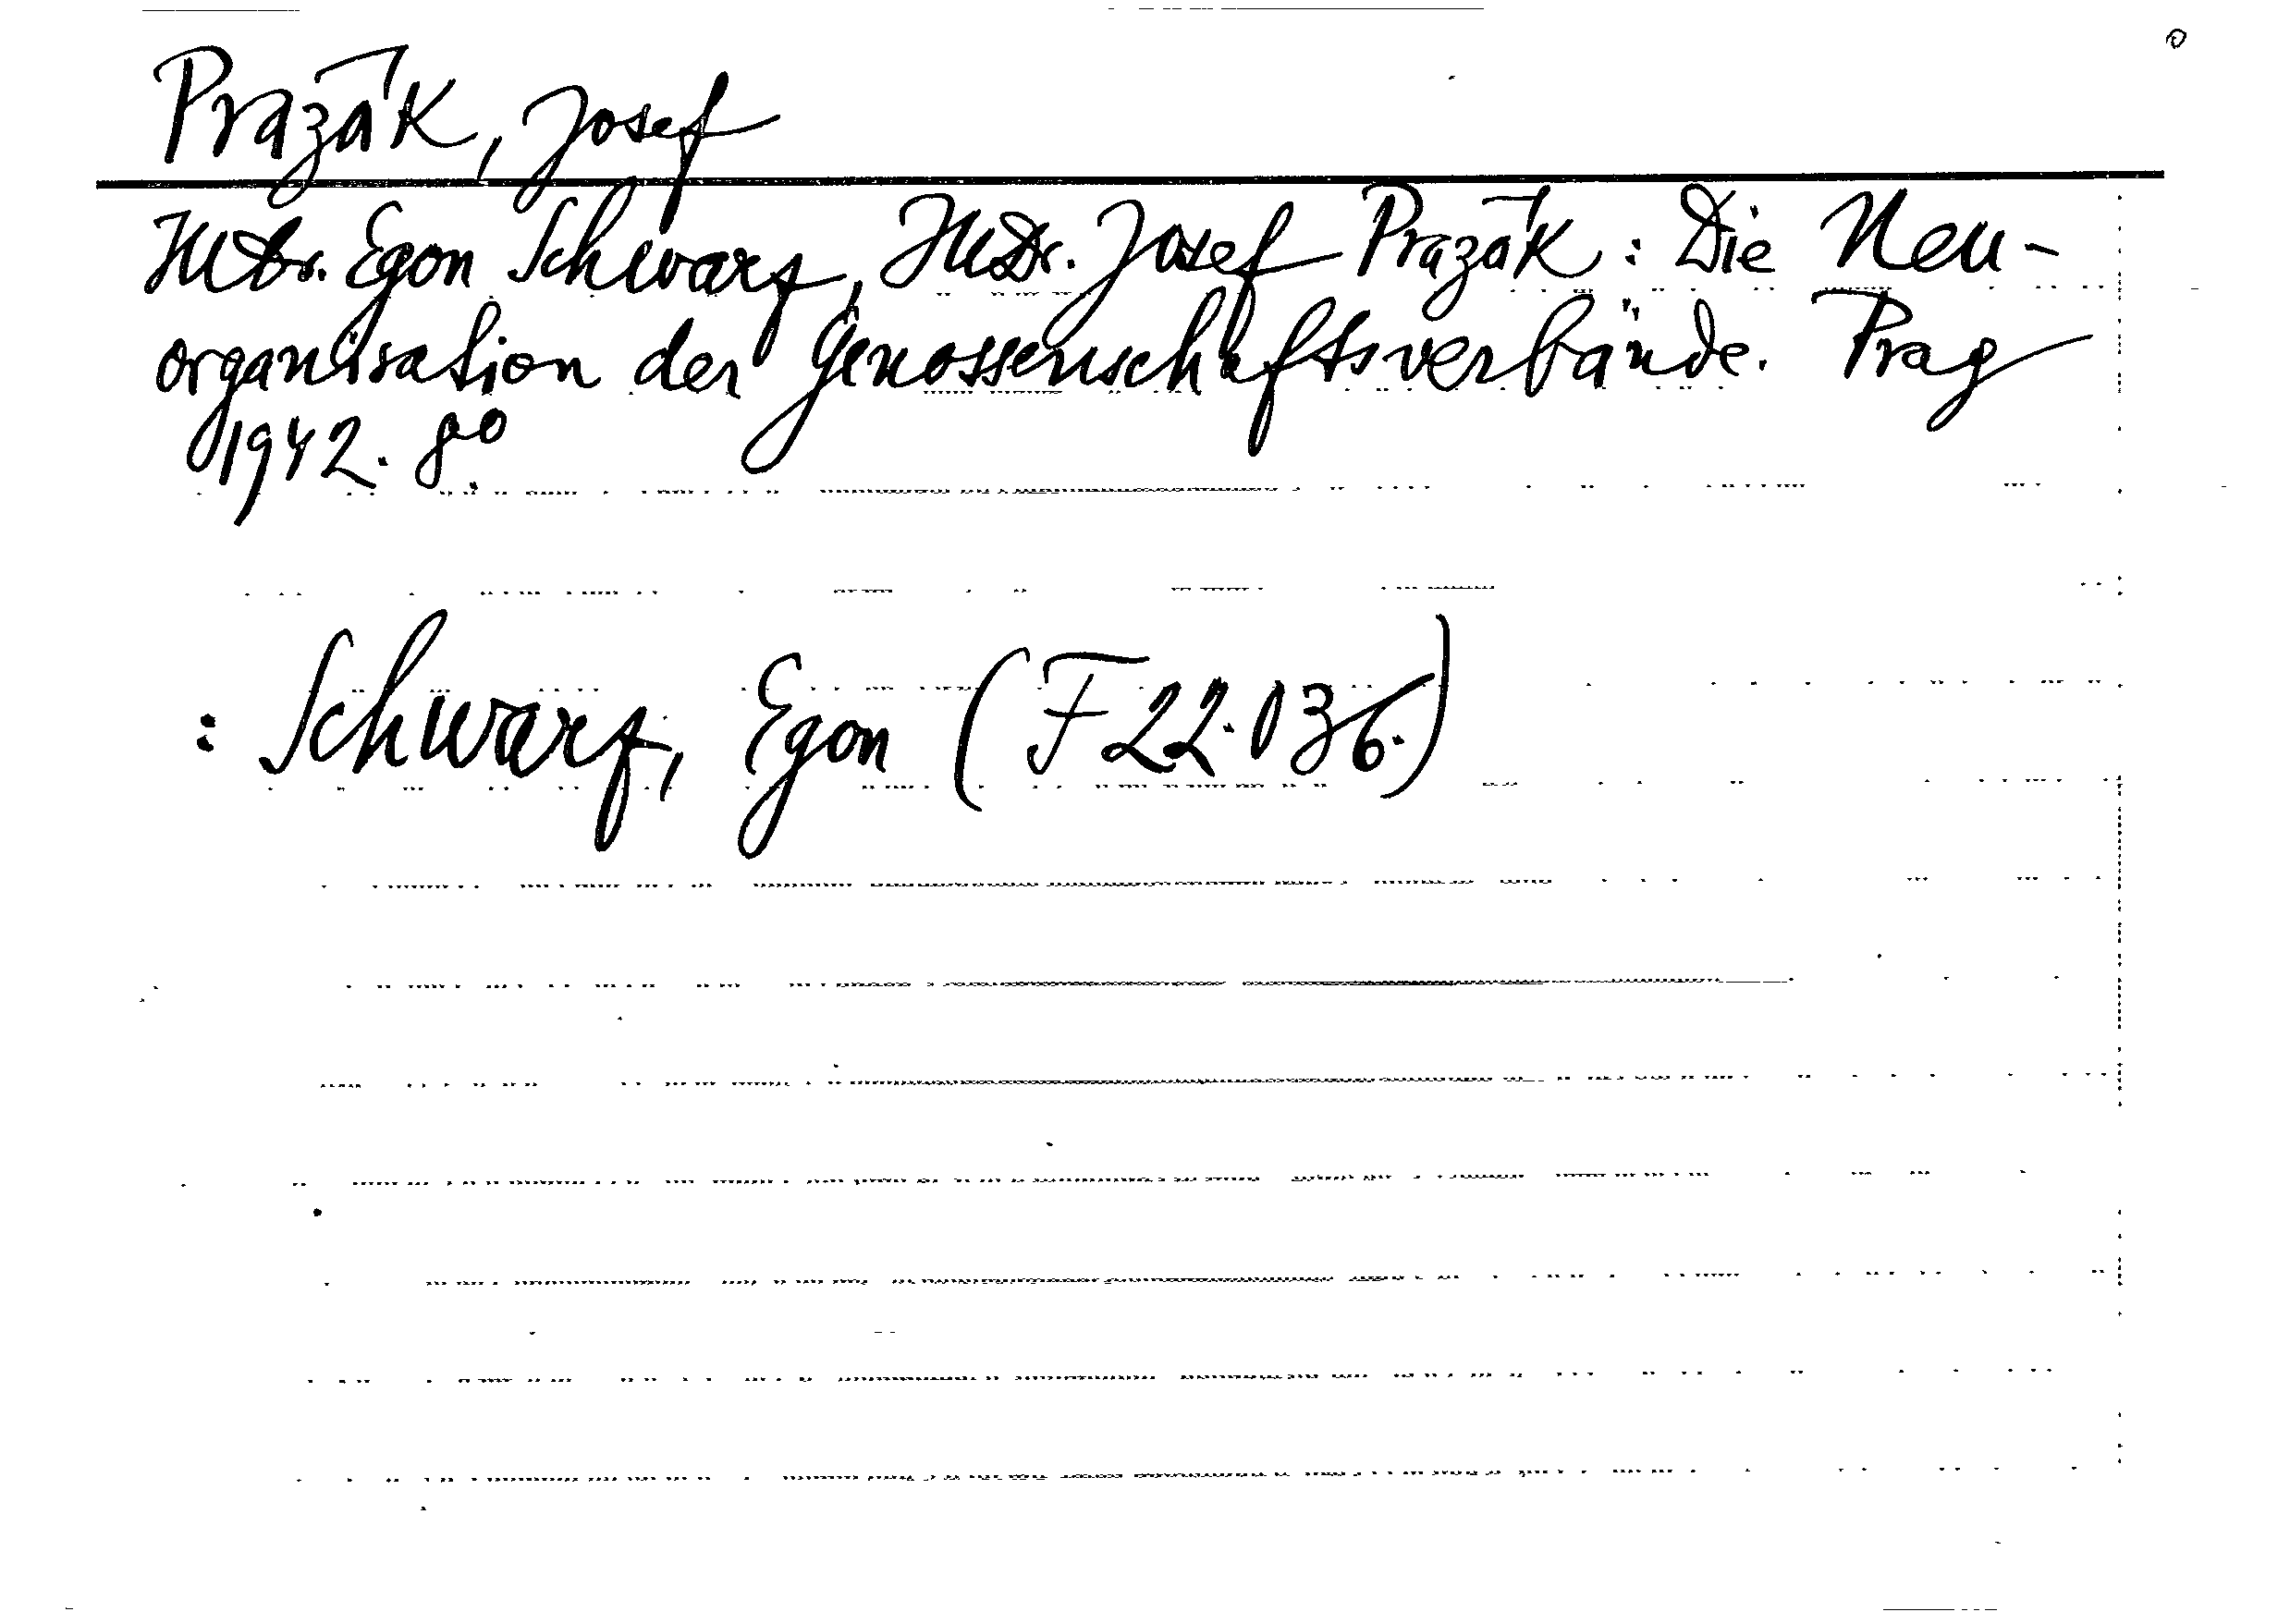 Prazák, Josef
JUDr. Egon Schwarz, JUDr. Josef Prazák: Die Neu-
organisation der Genossenschaftsverbände. Prag
1942. 8º.
: Schwarz, Egon (F 22.036.)